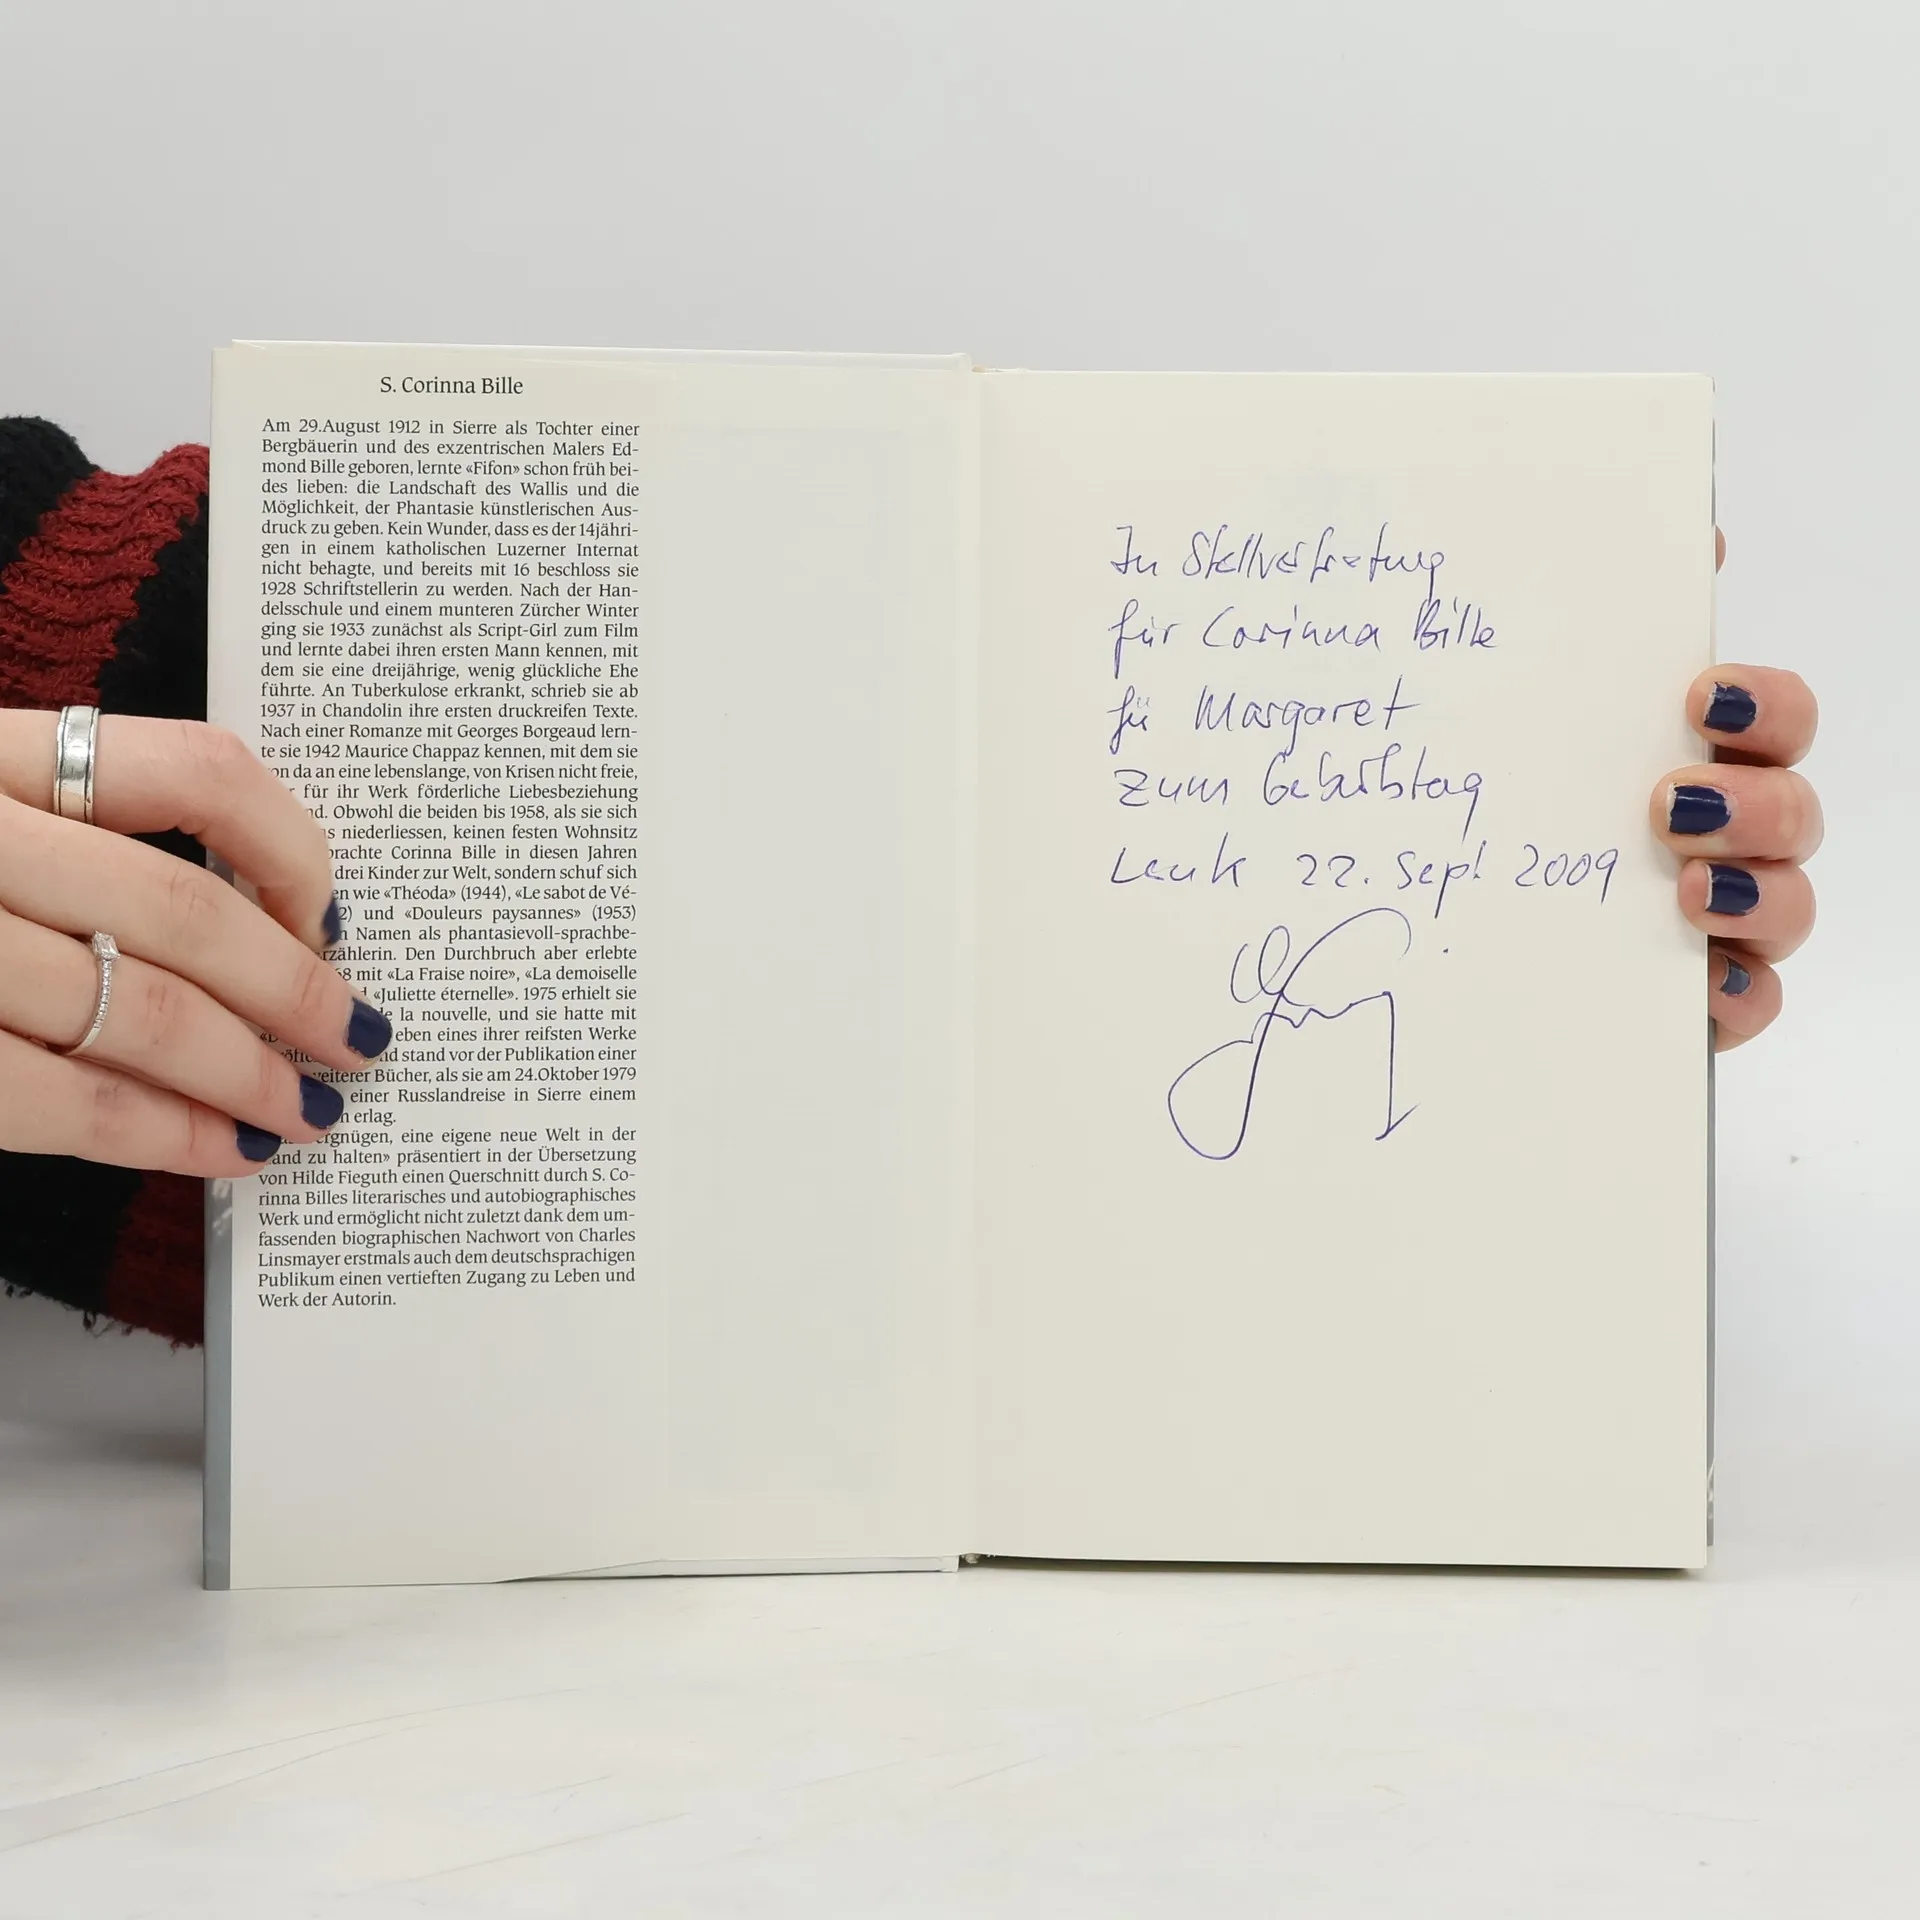 S. Corinna Bille
Am 29.August 1912 in Sierre als Tochter einer
Bergbäuerin und des exzentrischen Malers Ed-
mond Bille geboren, lernte «Fifon» schon früh bei-
des lieben: die Landschaft des Wallis und die
Möglichkeit, der Phantasie künstlerischen Aus-
druck zu geben. Kein Wunder, dass es der 14jähri-
gen in einem katholischen Luzerner Internat
nicht behagte, und bereits mit 16 beschloss sie
1928 Schriftstellerin zu werden. Nach der Han-
delsschule und einem munteren Zürcher Winter
ging sie 1933 zunächst als Script-Girl zum Film
und lernte dabei ihren ersten Mann kennen, mit
dem sie eine dreijährige, wenig glückliche Ehe
führte. An Tuberkulose erkrankt, schrieb sie ab
1937 in Chandolin ihre ersten druckreifen Texte.
Nach einer Romanze mit Georges Borgeaud lern-
te sie 1942 Maurice Chappaz kennen, mit dem sie
da an eine lebenslange, von Krisen nicht freie,
für ihr Werk förderliche Liebesbeziehung
Obwohl die beiden bis 1958, als sie sich
niederliessen, keinen festen Wohnsitz
brachte Corinna Bille in diesen Jahren
drei Kinder zur Welt, sondern schuf sich
wie «Théoda» (1944), «Le sabot de Vé-
und «Douleurs paysannes» (1953)
Namen als phantasievoll-sprachbe-
Den Durchbruch aber erlebte
mit «La Fraise noire», «La demoiselle
«Juliette éternelle». 1975 erhielt sie
la nouvelle, und sie hatte mit
eben eines ihrer reifsten Werke
stand vor der Publikation einer
weiterer Bücher, als sie am 24.Oktober 1979
einer Russlandreise in Sierre einem
erlag.
eine eigene neue Welt in der
zu halten» präsentiert in der Übersetzung
von Hilde Fieguth einen Querschnitt durch S. Co-
rinna Billes literarisches und autobiographisches
Werk und ermöglicht nicht zuletzt dank dem um-
fassenden biographischen Nachwort von Charles
Linsmayer erstmals auch dem deutschsprachigen
Publikum einen vertieften Zugang zu Leben und
Werk der Autorin.
In Stellvertretung
für Corinna Bille
für Margaret
zum Geburtstag
Leuk 22. Sept. 2009